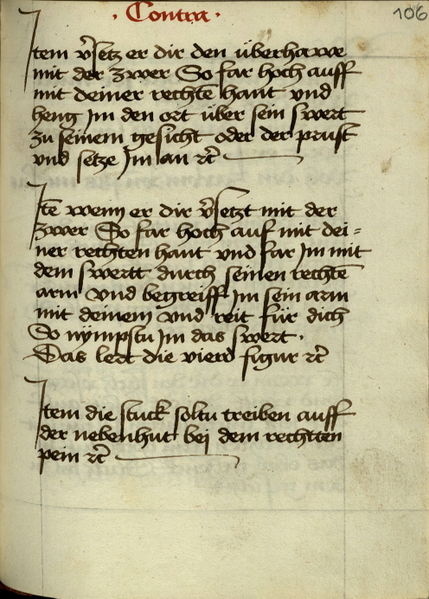 · Contra ·
106
Item v̄setz er dir den überhawe
mit der zwer So far hoch auff
mit deiner rechtē hant vnd
heng Im den ort über sein swert
zu seinem gesicht oder der prust
vnd setze Im an rc̄
Itē wenn er dir v̄setzt mit der
zwer So far hoch auf mit dei=
ner rechten hant vnd far Im mit
dem swertt durch seinen rechtē
arm vnd begreiff Im sein arm
mit deinem vnd reit für dich
So nÿmpstu Im das swert ·
Das lert die vierd figur rc̄
Item die stuck soltu treiben auff
der nebenhut bei dem rechtten
pein rc̄